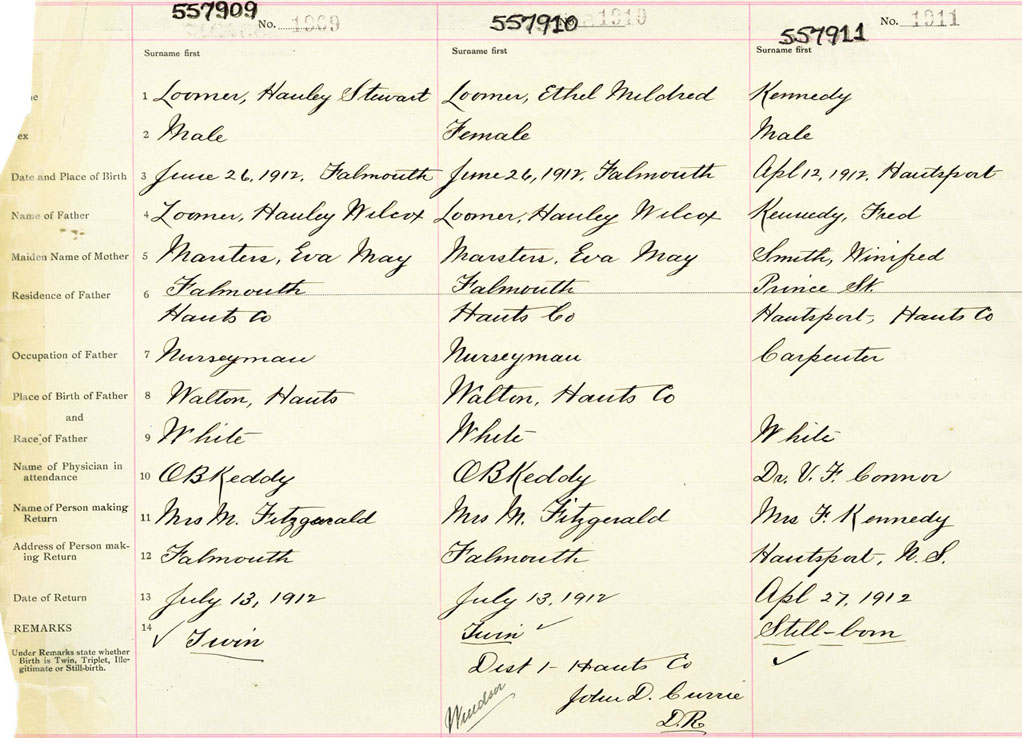 557909 No. 1909 557910 No. 1910 557911 No. 1911
Surname first Surname first Surname first
1 Loomer, Hanley Stewart Loomer, Ethel Mildred Kennedy
ex 2 Male Female Male
Date and Place of Birth 3 June 26, 1912, Falmouth June 26, 1912, Falmouth Apl 12, 1912, Hantsport
Name of Father 4 Loomer, Hanley Wilcox Loomer, Hanley Wilcox Kennedy, Fred
Maiden Name of Mother 5 Marsters, Eva May Marsters, Eva May Smith, Winifred
Residence of Father 6 Falmouth Falmouth Prince St.
Hants Co Hants Co Hantsport, Hants Co
Occupation of Father 7 Nurseyman Nurseyman Carpenter
Place of Birth of Father 8 Walton, Hants Walton, Hants Co
and
Race of Father 9 White White White
Name of Physician in
attendance 10 OBKeddy OBKeddy Dr. V. F. Connor
Name of Person making
Return 11 Mrs M. Fitzgerald Mrs M. Fitzgerald Mrs F. Kennedy
Address of Person mak-
ing Return 12 Falmouth Falmouth Hantsport, N.S.
Date of Return 13 July 13, 1912 July 13, 1912 Apl 27, 1912
REMARKS 14 ✓ Twin Twin ✓ Still-born ✓
Under Remarks state whether
Birth is Twin, Triplet, Ille-
gitimate or Still-birth.
Dist 1- Hants Co
Windsor John D. Currie
D.R